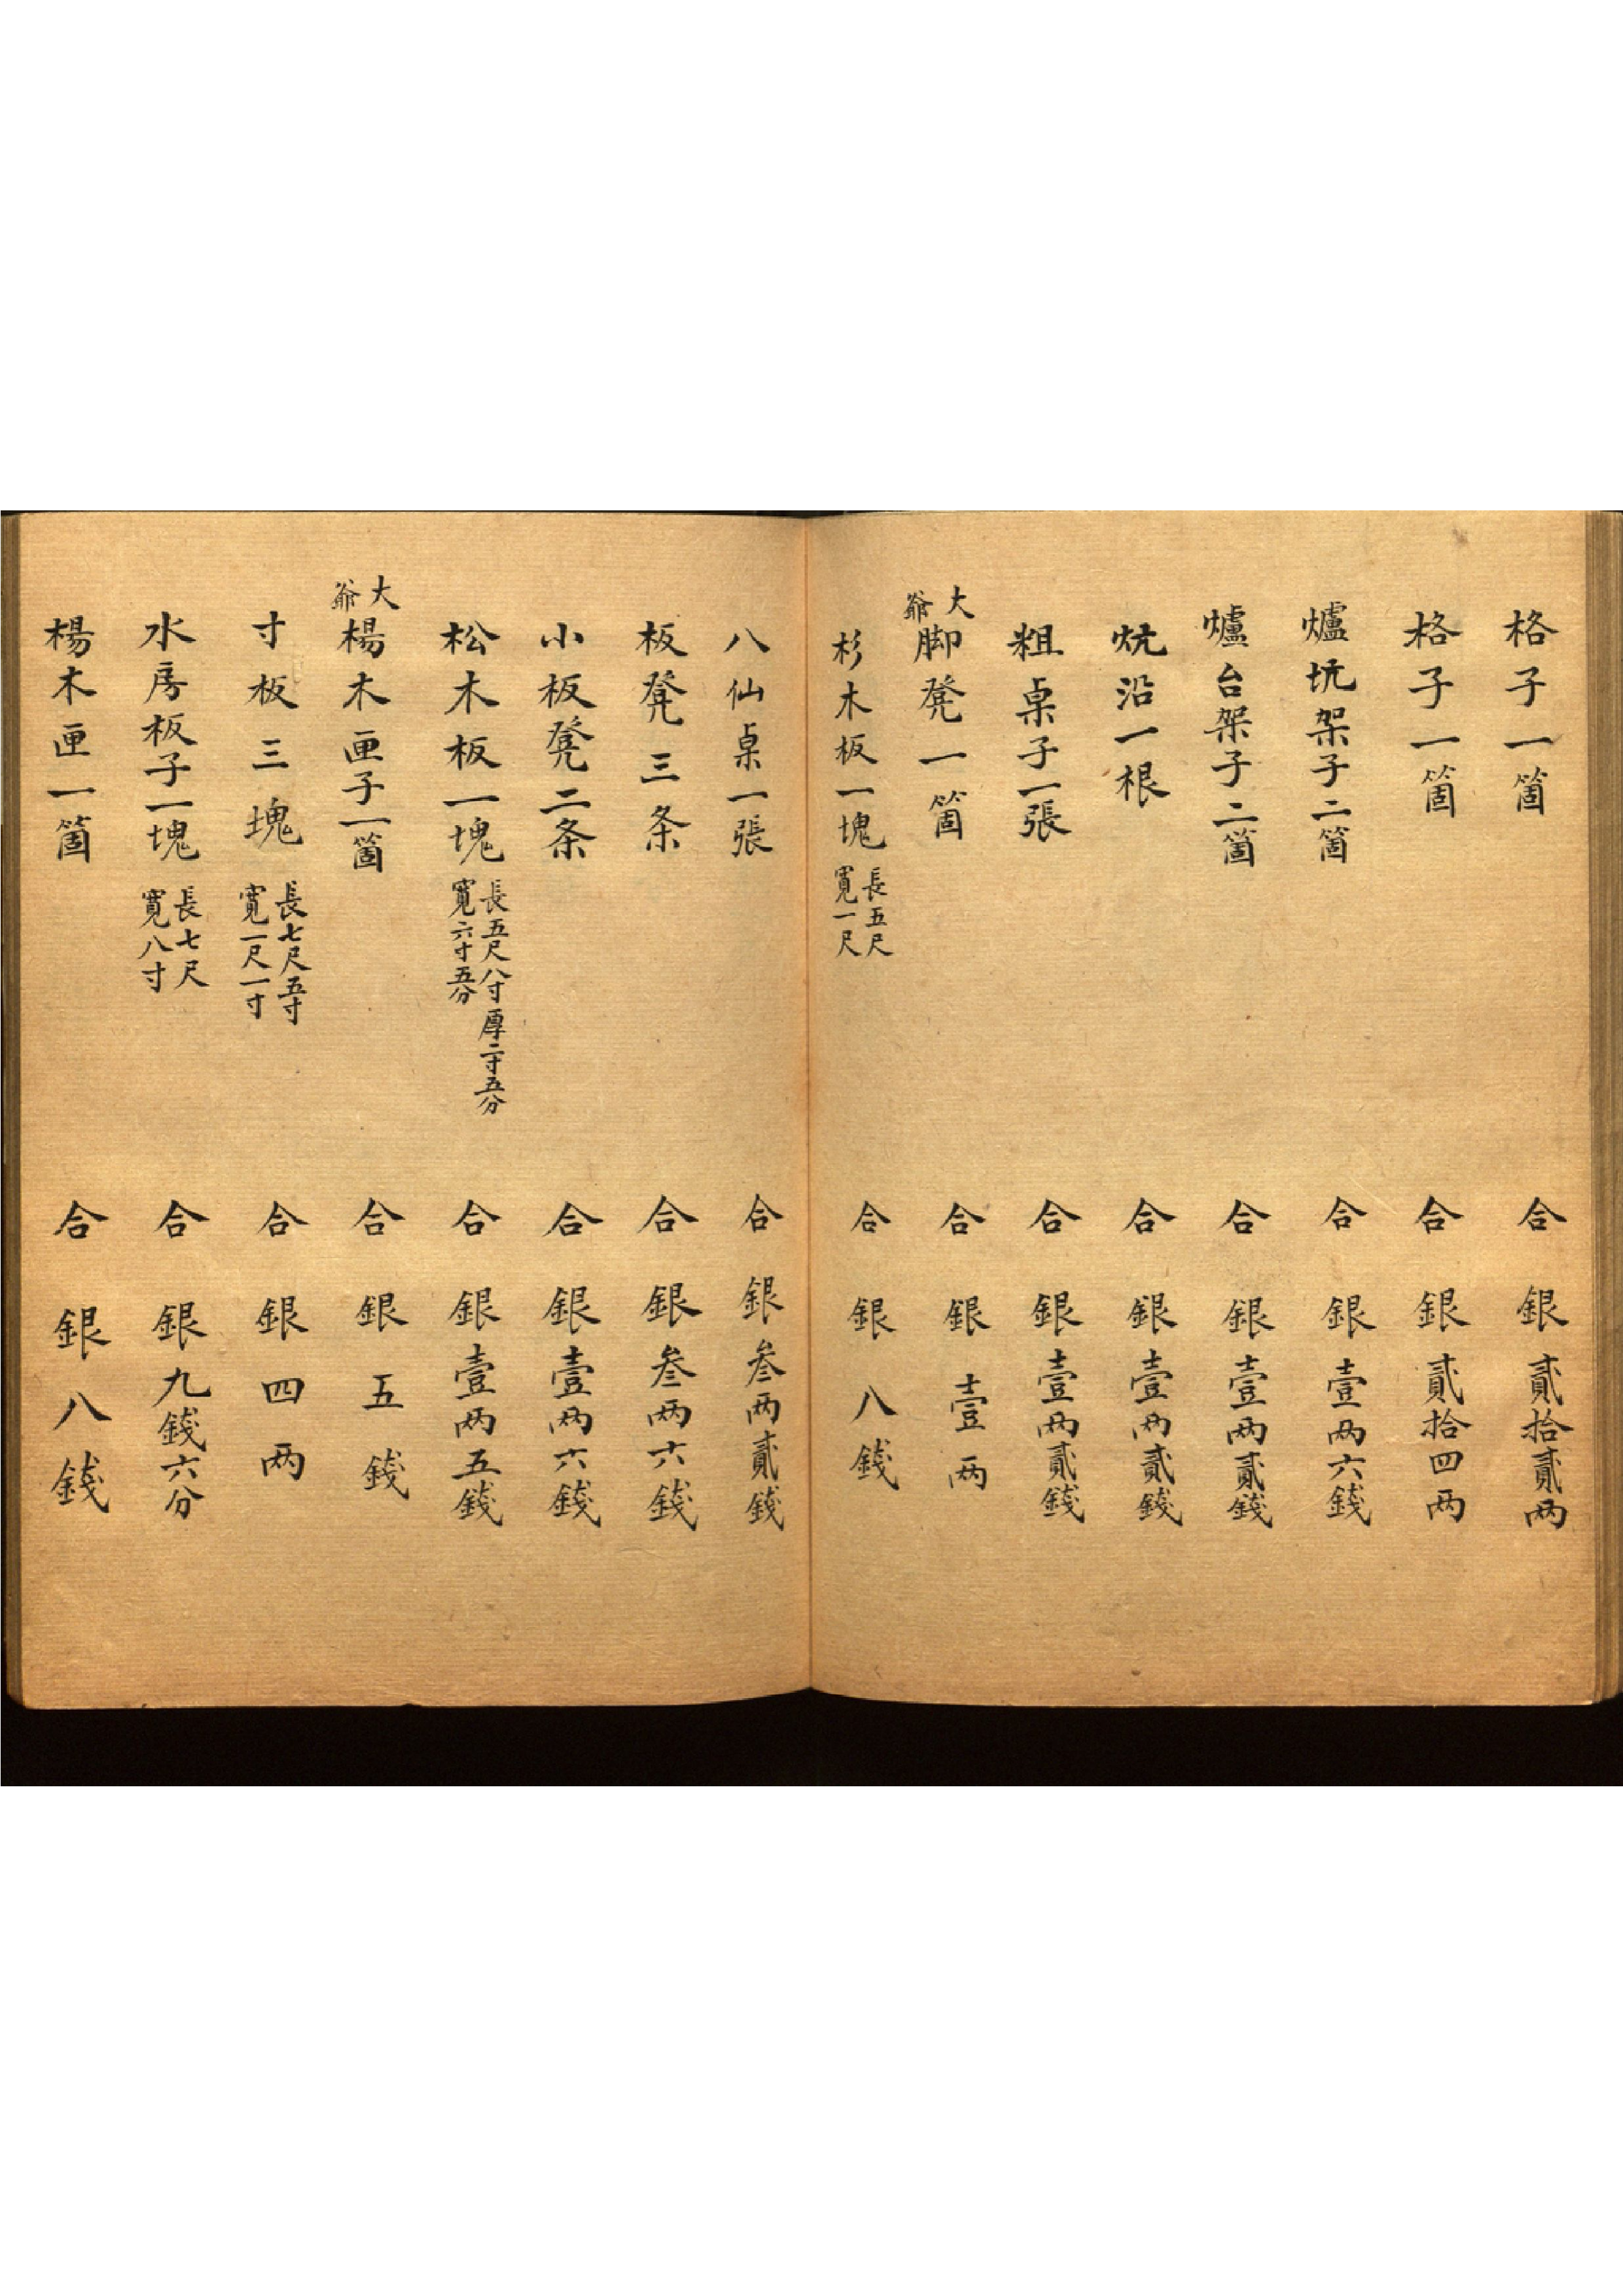 格子一箇 合銀貳拾貳両
格子一箇 合銀貳拾四両
爐坑架子二箇 合銀壹両六錢
爐台架子二箇 合銀壹両貳錢
炕沿一根 合銀壹両貳錢
粗桌子一張 合銀壹両貳錢
大爺脚凳一箇 合銀壹両
杉木板一塊 長五尺寬一尺 合銀八錢
八仙桌一張 合銀叁両貳錢
板凳三条 合銀叁両六錢
小板凳二条 合銀壹両六錢
松木板一塊 長五尺八寸厚二寸五分寬六寸五分 合銀壹両五錢
大爺楊木匣子一箇 合銀五錢
寸板三塊 長七尺五寸寬一尺一寸 合銀四両
水房板子一塊 長七尺寬八寸 合銀九錢六分
楊木匣一箇 合銀八錢